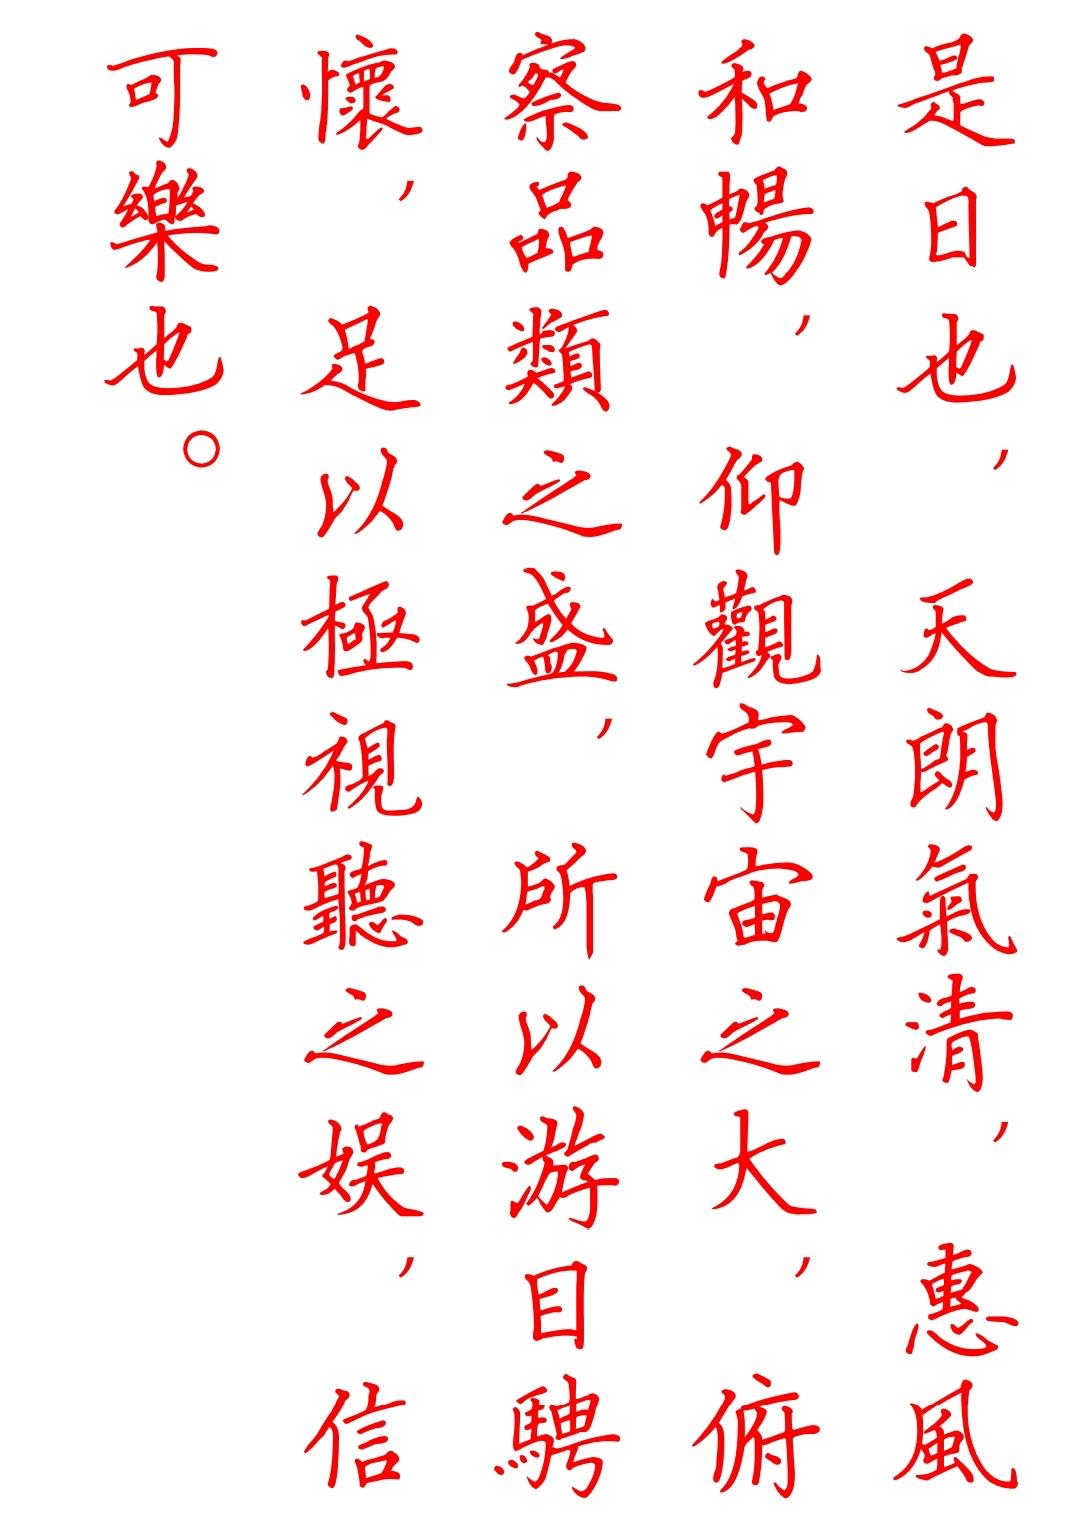 是日也，天朗氣清，惠風
和暢，仰觀宇宙之大，俯
察品類之盛，所以游目騁
懷，足以極視聽之娱，信
可樂也。